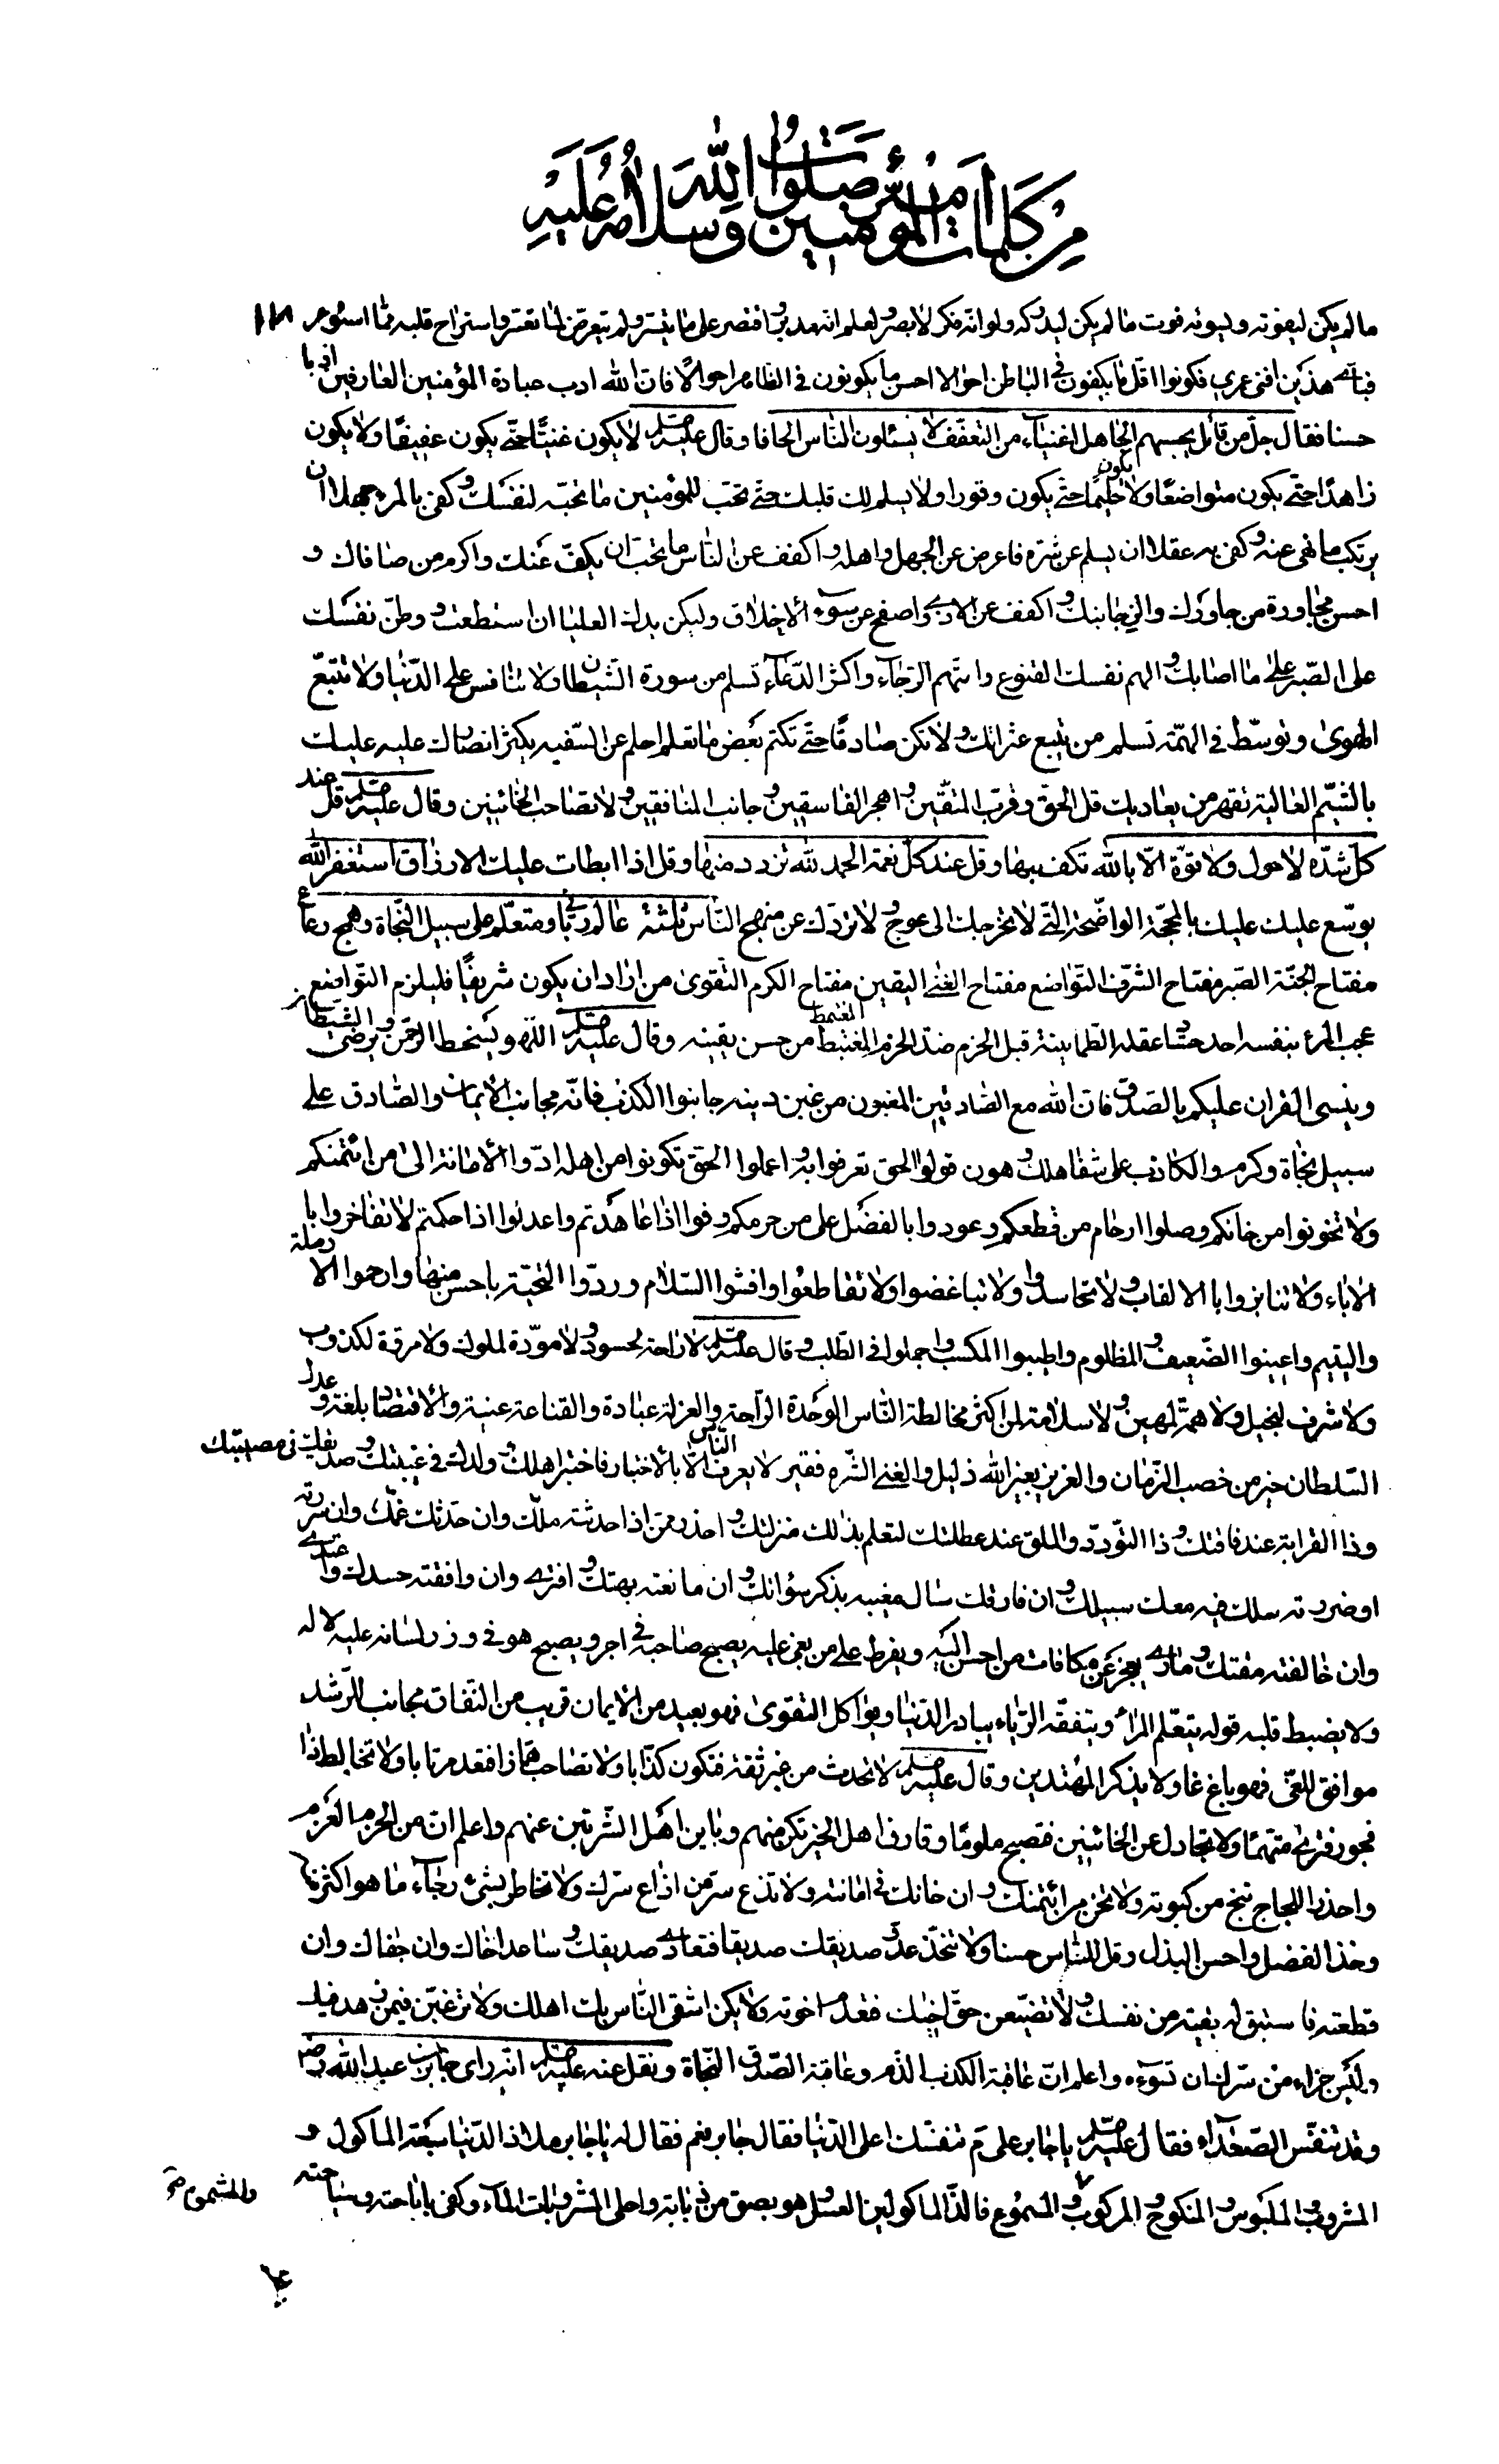 من كلمات أمير المؤمنين صلوات الله وسلامه عليه
ما لم يكن ليفوته ويسوئه فوت ما لم يكن ليدركه ولو انه فكر لابصر ولعلم انه مدبر واقتصر على ما تيسر ولم يتعرض لما تعسر واستراح قلبه مما استوعر
هذين افنى عمري فكونوا اقل ما يكونون في الباطن احوالا احسن ما يكونون في الظاهر احوالا فان الله ادب عباده المؤمنين العارفين ادبا
حسنا فقال جل من قائل يحسبهم الجاهل اغنياء من التعفف لا يسئلون الناس الحافا وقال عليه لا يكون غنيا حتى يكون عفيفا ولا يكون
زاهدا حتى يكون متواضعا ولا يكون حليما حتى يكون وقورا ولا يسلم لك قلبك حتى تحب للمؤمنين ما تحبه لنفسك وكفى بالمرء جهلا ان
يرتكب ما نهى عنه وكفى به عقلا ان يسلم عن شره فاعرض عن الجهل واهله واكفف عن الناس ما تحب ان يكف عنك واكرم من صافاك و
احسن مجاورة من جاورك والن جانبك واكفف عن الاذى واصفح عن سوء الاخلاق وليكن يدك العليا ان استطعت ووطن نفسك
على الصبر على ما اصابك والهم نفسك القنوع واتهم الرجاء واكثر الدعاء تسلم من سورة الشيطان ولا تنافس على الدنيا ولا تتبع
الهوى وتوسط في الهمة تسلم من يتبع عثراتك ولا تكن صادقا حتى تكتم بعض ما تعلم احلم عن السفيه يكثر انصارك عليه عليك
بالشيم العالية تقهر من يعاديك قل الحق وقرب المتقين واهجر الفاسقين وجانب المنافقين ولا تصاحب الخائنين وقال عليه قل عند
كل شدة لا حول ولا قوة الا بالله تكف بها وقل عند كل نعمة الحمد لله تزدد منها وقل اذا ابطات عليك الارزاق استغفر الله
يوسع عليك عليك بالمحجة الواضحة التي لا تخرجك الى عوج ولا تردك عن منهج الناس ثلثة عالم رباني ومتعلم على سبيل النجاة وهمج رعاع
مفتاح الجنة الصبر مفتاح الشرف التواضع مفتاح الغنى اليقين مفتاح الكرم التقوى من اراد ان يكون شريفا فليلزم التواضع
عجب المرء بنفسه احد حساد عقله الطمانينة قبل الحزم ضد الحزم المغتبط من حسن يقينه وقال عليه اللهو يسخط الرحمن ويرضى الشيطان
وينسى القران عليكم بالصدق فان الله مع الصادقين المغبون من غبن دينه جانبوا الكذب فانه مجانب الايمان والصادق على
سبيل نجاة وكرم والكاذب على شفا هلك وهون قولوا الحق تعرفوا به واعملوا الحق تكونوا من اهله ادوا الامانة الى من ائتمنكم
ولا تخونوا من خانكم وصلوا ارحام من قطعكم وعودوا بالفضل على من حرمكم وفوا اذا عاهدتم واعدلوا اذا حكمتم لا تفاخروا با
الاباء ولا تنابزوا با الالقاب ولا تحاسدوا ولا تباغضوا ولا تقاطعوا وافشوا السلام وردوا التحية باحسن منها وارحموا الارملة
واليتيم واعينوا الضعيف والمظلوم واطيبوا المكسب واجملوا في الطلب وقال عليه لا راحة لحسود ولا مودة لملوك ولا مروة لكذوب
ولا شرف لبخيل ولا همة لمهين ولا سلامة لمن اكثر مخالطة الناس الوحدة الراحة والعزلة عبادة والقناعة غنية والاقتصاد بلغة وعدل
السلطان خير من خصب الزمان والعزيز بغير الله ذليل والغني الشره فقير لا يعرف الناس الا بالاختبار فاختبر اهلك وولدك في غيبتك وصديقك في مصيبتك
وذا القرابة عند فاقتك وذا التودد والملق عند عطلتك لتعلم بذلك منزلتك واحذر ممن اذا حدثته ملك وان حدثك غمك وان سررته
او ضررته سلك فيه معك سبيلك وان فارقك ساءك مغيبه بذكر سوأتك وان مانعته بهتك وافترى وان وافقته حسدك واعتدى
وان خالفته مقتك ومارى يعجز عن مكافات من احسن اليه ويفرط على من بغى عليه يصبح صاحبه في اجر ويصبح هو في وزر لسانه عليه لا له
ولا يضبط قلبه قوله يتعلم المراء ويتفقه الرياء يبادر الدنيا ويواكل التقوى فهو بعيد من الايمان قريب من النفاق مجانب للرشد
موافق للغي فهو باغ غاو لا يذكر المهتدين وقال عليه لا تحدث من غير ثقة فتكون كذابا ولا تصاحب همازا فتعد مرتابا ولا تخالط ذا
فجور فترى متهما ولا تجادل عن الخائنين فتصبح ملوما وقارن اهل الخير تكن منهم وباين اهل الشر تبن عنهم واعلم ان من الحزم العزم
واحذر اللجاج تنج من كبوته ولا تخن من ائتمنك وان خانك في امانته ولا تذع سر من اذاع سرك ولا تخاطر بشيء رجاء ما هو اكثر منه
وخذ الفضل واحسن البذل وقل للناس حسنا ولا تتخذ عدو صديقك صديقا فتعادى صديقك وساعد اخاك وان جفاك وان
قطعته فاستبق له بقية من نفسك ولا تضيعن حق اخيك فتعدم اخوته ولا يكن اشقى الناس بك اهلك ولا ترغبن فيمن زهد فيك
وليس جزاء من سرك ان تسوءه واعلم ان عاقبة الكذب الذم وعاقبة الصدق النجاة ونقل عنه عليه انه راى جابر بن عبد الله رض
وقد تنفس الصعداء فقال عليه يا جابر على م تنفسك اعلى الدنيا فقال جابر نعم فقال له يا جابر ملاذ الدنيا سبعة الماكول و
المشروب والملبوس والمنكوح والمركوب والمسموع والمشموم فالذ الماكولين العسل وهو بصق من ذبابة واحلى المشروبات الماء وكفى باباحته وسباحته